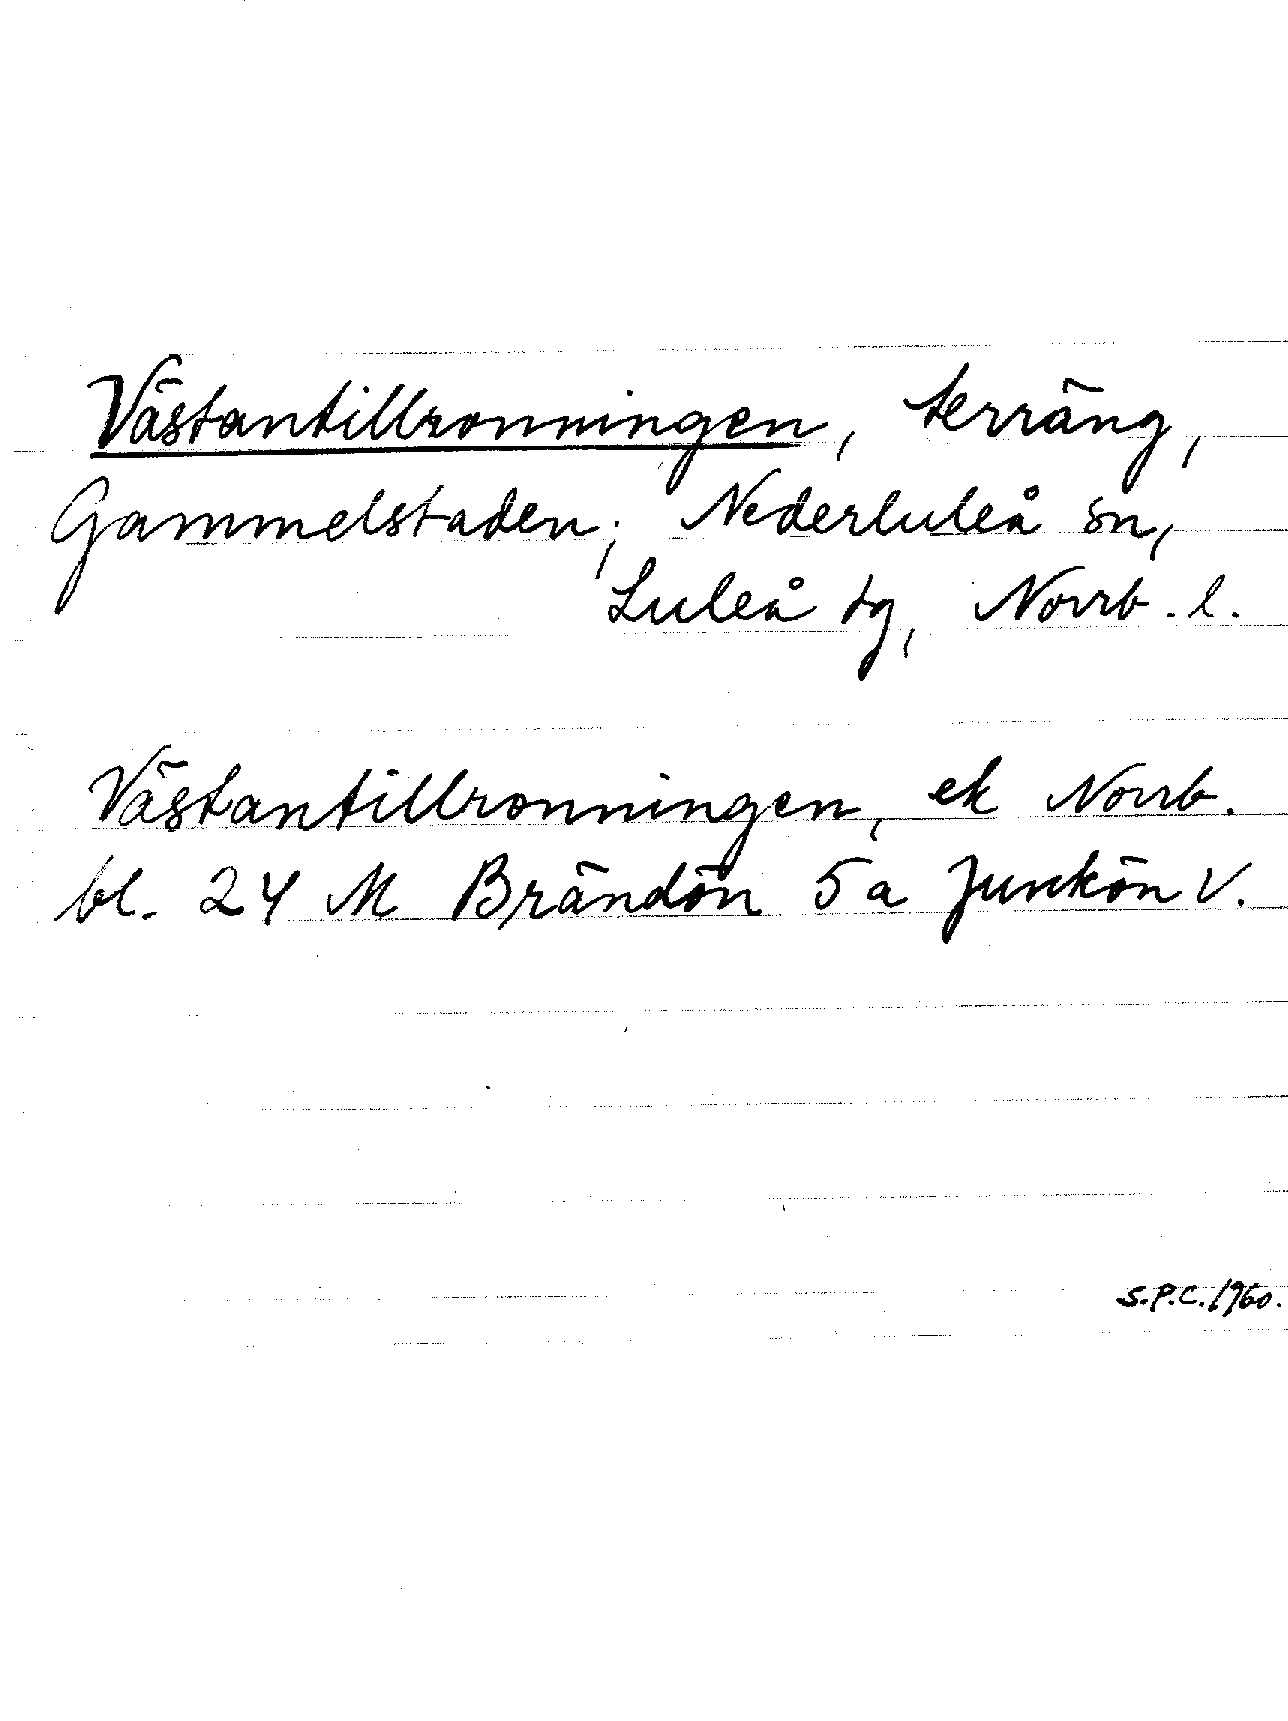 Västantillronningen, terräng,
Gammelstaden, Nederluleå sn,
Luleå tg, Norrb. l.
Västantillronningen, ek Norrb.
bl. 24 M Brändön 5a Junkön V.
S.P.C. 1960.